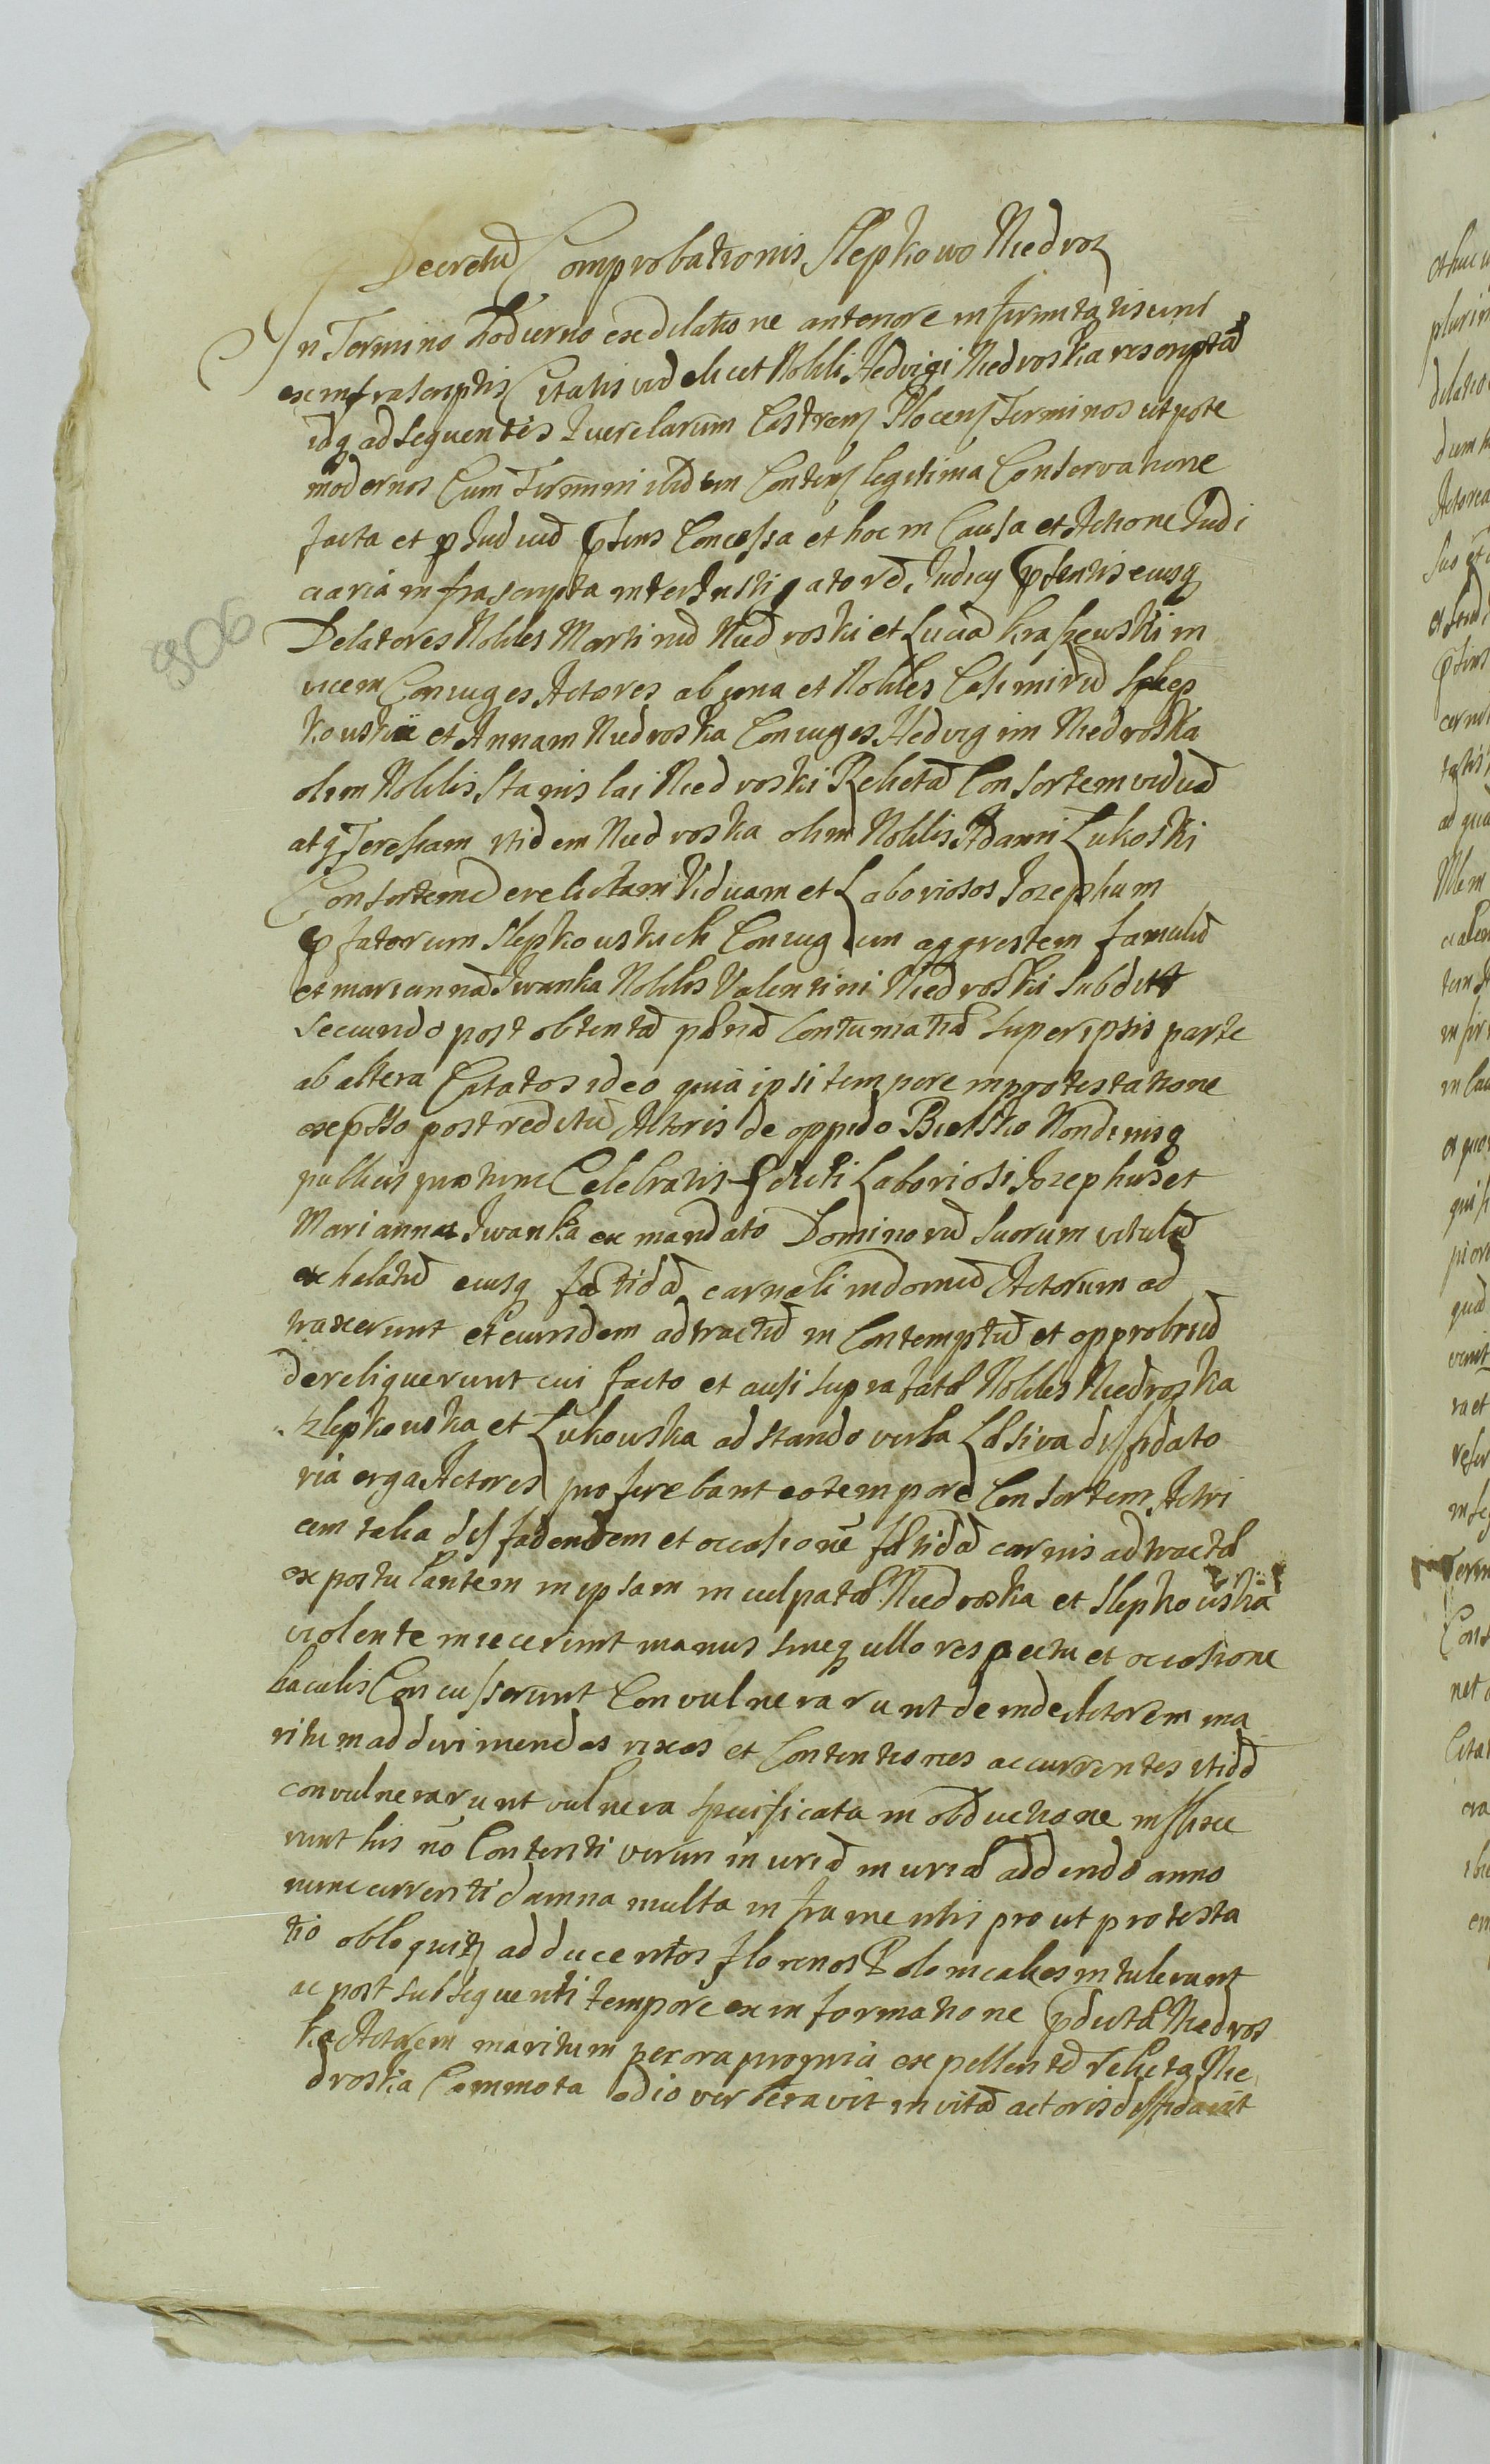 Decretū Comprobationis Slepkowo Niedroz
In Termino hodierno ex dilatione anteriore infirmitatis uni
ex infrascriptis Citatis videlicet Nobili Hedvigi Niedroska rescriptā
idq ad sequentes Querelarum Castrens Plocens Terminos utpote
modernos Cum Termini ibidem Contens legitima Conservatione
facta et p Judiciū pñs Concessa et hoc in Causa et Actione Judi
ciaria infrascripta inter Instigatorē Judicij pñtis eiusq
Delatores Nobiles Martinū Niedroski et Luciā Kraszewski in
vicem Coniuges Actores ab una et Nobiles Casimirū Slep
kouskii et Annam Niedroska Coniuges Hedvigim Niedroska
olim Nobilis Stanislai Niedroski Relictā Consortem viduā
atq Teresiam itidem Niedroska olim Nobilis Adami Lukoski
Consortem derelictam Viduam et Laboriosos Jozephum
pfatorum Slepkouskich Coniugum aggrestem famulū
et mariannā Iwanka Nobilis Valentini Niedroski subdit
secundo post obtentā pñā Contumatiā super ipsis parte
ab altera Citatos ideo quia ipsi tempore in protestatione
expsso post reditū Actoris de oppido Bielsko Nondinisq
publicis pro tunc Celebratis pdicti Laboriosi Jozephus et
Marianna Iwanka ex mandato Dominorū suorum vitulū
exhalatū eiusq fætidā carnæli in domū Actorum ad
traxerunt et eumdem adtractū in Contemptū et opprobriū
dereliquerunt cui facto et ausi suprafatæ Nobiles Niedroska
Slepkouska et Lukouska adstando verba Læsiva diffidato
ria erga Actores proferebant eo tempore Consortem Actri
cem talia diffadendem et occasione fætidā carnis adtractæ
expostulantem in ipsam inculpatæ Niedroska et Slepkouska
violente iniecerunt manus sineq ullo respectu et occasione
baculis Concusserunt Convulnerarunt deinde Actorem ma
ritum ad dirimendas rixas et Contentiones accurrentes itidē
convulnerarunt vulnera specificata in obductione inflixe
runt his nō Contenti verum iniuriā iniuriæ addendo anno
nunc currenti damna multa in framentis prout protesta
tio obloquitz ad ducentos florenos Polonicales intulerunt
ac post subsequenti tempore ex informatione pdictæ Niedros
ka Actorem maritum pecora propria expellentē relicta Nie
droska Commota odio verberavit in vitā actoris diffidavit
306